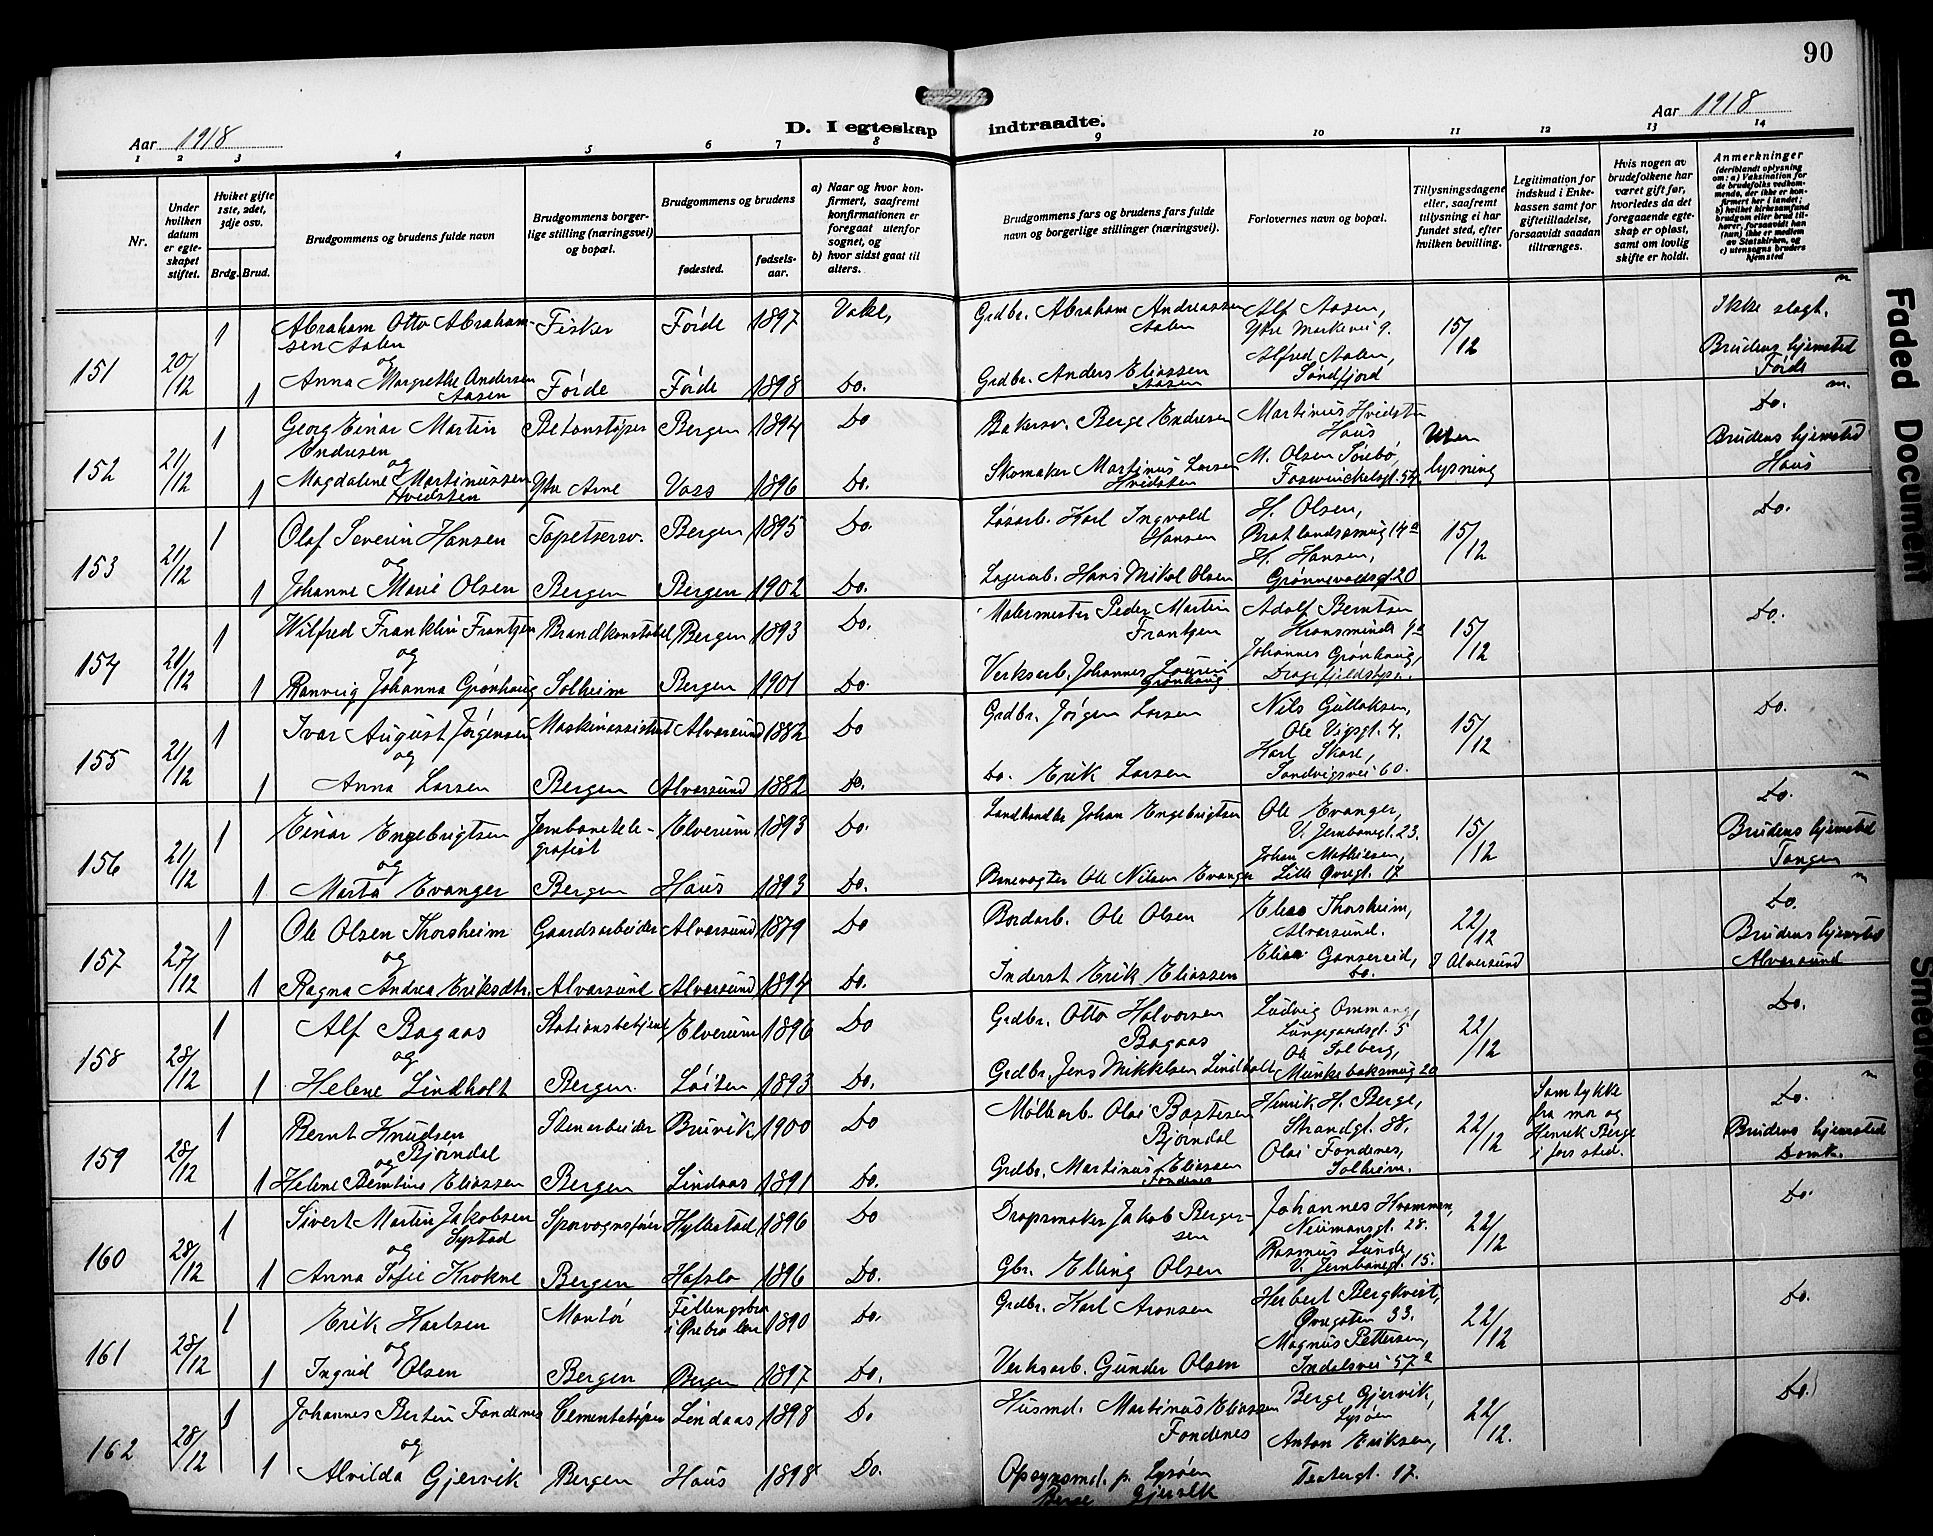 90
Aar 1918
D. I egteskap indtraadte.
Aar 1918
1 2 3 4 5 6 7 8 9 10 11 12 13 14
Nr.
Under hvilken datum er egteskapet stiftet.
Hvilket gifte 1ste, 2det, 3dje osv.
Brdg. Brud.
Brudgommens og brudens fulde navn
Brudgommens borgerlige stilling (næringsvei) og bopæl.
Brudgommens og brudens
fødested.
fødselsaar.
a) Naar og hvor konfirmert, saafremt konfirmationen er foregaat utenfor sognet, og
b) hvor sidst gaat til alters.
Brudgommens fars og brudens fars fulde navn og borgerlige stillinger (næringsvei).
Forlovernes navn og bopæl.
Tillysningsdagene eller, saafremt tillysning ei har fundet sted, efter hvilken bevilling.
Legitimation for indskud i Enkekassen samt for giftetilladelse, forsaavidt saadan tiltrænges.
Hvis nogen av brudefolkene har været gift før, hvorledes da det foregaaende egteskap er opløst, samt om lovlig skifte er holdt.
Anmerkninger (deriblandt oplysning om: a) Vaksination for de brudefolks vedkommende, der ikke er konfirmert her i landet; b) hvilket kirkesamfund brudgom eller brud tilhører, forsaavidt han (hun) ikke er medlem av Statskirken, og c) utensogns bruders hjemsted
151 20/12 1 Abraham Otto Abrahamsen Aalen Fisker Førde 1897 Grdbr. Abraham Andreassen Aalen Alf Aasen, Ytre Markevei 9. 15/12 Ikke slegt.
og
1 Anna Margrethe Andersen Aasen Førde Førde 1898 Do. Grdbr. Anders Eliassen Aasen Alfred Aalen, Søndfjord Brudens hjemsted Førde
152 21/12 1 Georg Einar Martin Endresen Betonstøper Bergen 1894 Do Bakersv. Berge Endresen Martinus Hvidsten Haus Uten lysning Do.
og
1 Magdalene Martinussen Hvidsten Ytre Arne Voss 1896 Do. Skomaker Martinus Larsen Hvidsten M. Olsen Sørbø, Foswinckelsgt. 54 Brudens hjemsted Haus
153 21/12 1 Olaf Severin Hansen Tapetserersv. Bergen 1895 Do. Løsarb. Karl Ingvald Hansen H. Olsen, Bratlandssmug 14a 15/12 Do.
og
1 Johanne Marie Olsen Bergen Bergen 1902 Do. Lagerarb. Hans Mikal Olsen H. Hansen, Grønnevoldsgt. 20
154 21/12 1 Wilfred Franklin Frantzen Brandkonstabel Bergen 1893 Do. Malermester Peder Martin Frantzen Adolf Berntsen Kransminde 9a 15/12 Do.
og
1 Ranveig Johanna Grønhaug Solheim Bergen 1901 Do. Verksarb. Johannes Laurin Grønhaug Johannes Grønhaug,
155 21/12 1 Ivar August Jørgensen Maskinassistent Alversund 1882 Do Grdbr. Jørgen Larsen Nils Gullaksen, Ole Vigsgt. 4. 15/12 Do.
og
1 Anna Larsen Bergen Alversund 1882 Do. Do. Erik Larsen Karl Skare, Sandvigsvei 60.
156 21/12 1 Einar Engebrigtsen Jernbanetelegrafist Elverum 1893 Do. Landhandler Johan Engebrigtsen Ole Evanger, V. Jernbanegt. 23. 15/12 Do.
og
1 Marta Evanger Bergen Haus 1893 Do. Banevogter Ole Nilsen Evanger Johan Mathiesen, Lille Øvregt. 17 Brudens hjemsted Tangen
157 27/12 1 Ole Olsen Thorsheim Gaardsarbeider Alversund 1879 Do Bordarb. Ole Olsen Elias Thorsheim, Alversund. 22/12 I Alversund Do.
og
1 Ragna Andrea Eriksdtr. Alversund Alversund 1894 Do. Inderst Erik Eliassen Elias Gausereid, Do. Brudens hjemsted Alversund
158 28/12 1 Alf Bagaas Stationsbetjent Elverum 1896 Do Grdbr. Otto Halvorsen Bagaas Ludvig Ommang, Lungegaardsgt. 5 22/12 Do.
og
1 Helene Lindholt Bergen. Løiten 1893 Do. Grdbr. Jens Mikkelsen Lindholt Ole Solberg, Munkebæksmug 20
159 28/12 1 Bernt Knudsen Bjørndal Stenarbeider Bruvik 1900 Do Møllearb. Olai Bastesen Bjørndal Henrik H. Berge, Strandgt. 88. 22/12 Samtykke fra mor og Henrik Berge i fars sted. Do.
og
1 Helene Berntine Eliassen Bergen Lindaas 1891 Do. Grdbr. Martinus Eliassen Fondenes Olai Fondenes, Solheim. Brudens hjemsted Domk.
160 28/12 1 Sivert Martin Jakobsen Systad Sporvognsfører Hyllestad 1896 Do Dropsmaker Jakob Bergersen Johannes Krammen, Neumansgt. 28. 22/12 Do.
og
1 Anna Sofie Krokne Bergen Hafslo 1896 Do. Gbr. Elling Olsen Rasmus Lunde, V. Jernbanegt. 15.
161 28/12 1 Erik Karlsen Montør Fellingsbro i Ørebro len 1890 Do. Grdbr. Karl Aronsen Herbert Bergkvist, Øvregaten 33. 22/12 Do.
og
1 Ingrid Olsen Bergen Bergen 1897 Do. Verksarb. Gunder Olsen Magnus Pettersen, Indalsvei 57a
162 28/12 1 Johannes Bertin Fondenes Cementstøper Lindaas 1898 Do Husmd. Martinus Eliassen Fondenes Berge Gjervik, Lysøen 22/12. Do.
og
1 Alvilda Gjervik Bergen Haus 1898 Do. Opsynsmd. p. Lysøen Berge Gjervik Anton Eriksen, Teatergt. 17.
Faded Document
Smedret